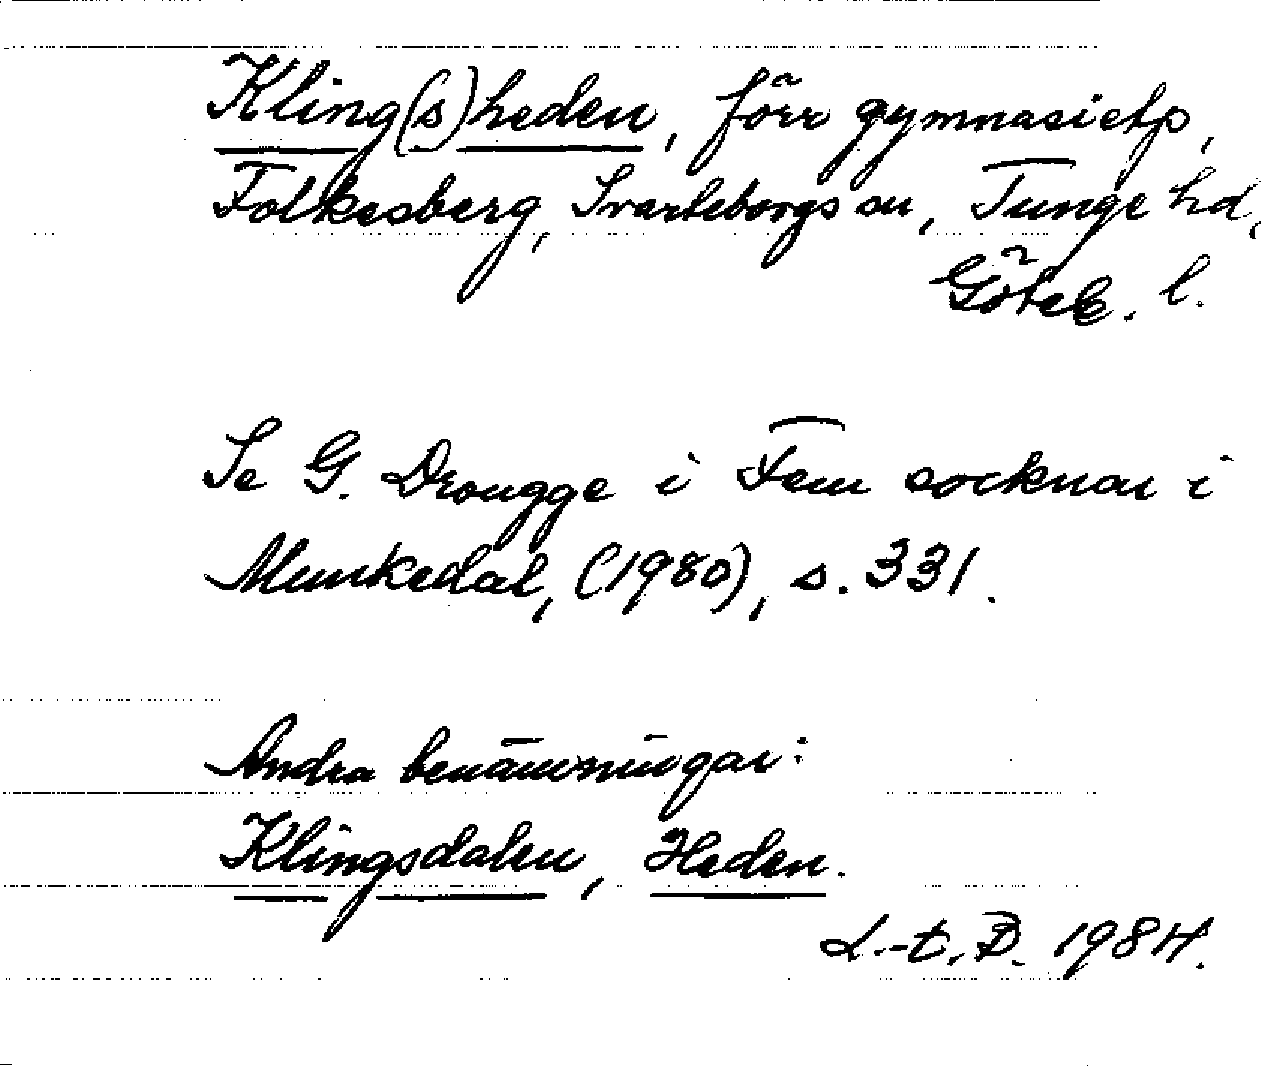 Kling(s)heden, förr gymnasietp,
Folkesberg, Svarteborgs sn, Tunge hd,
Göteb. l.
Se G. Drougge i Fem socknar i
Munkedal, (1980), s. 331.
Andra benämningar:
Klingsdalen, Heden.
L.-t. B. 1984.